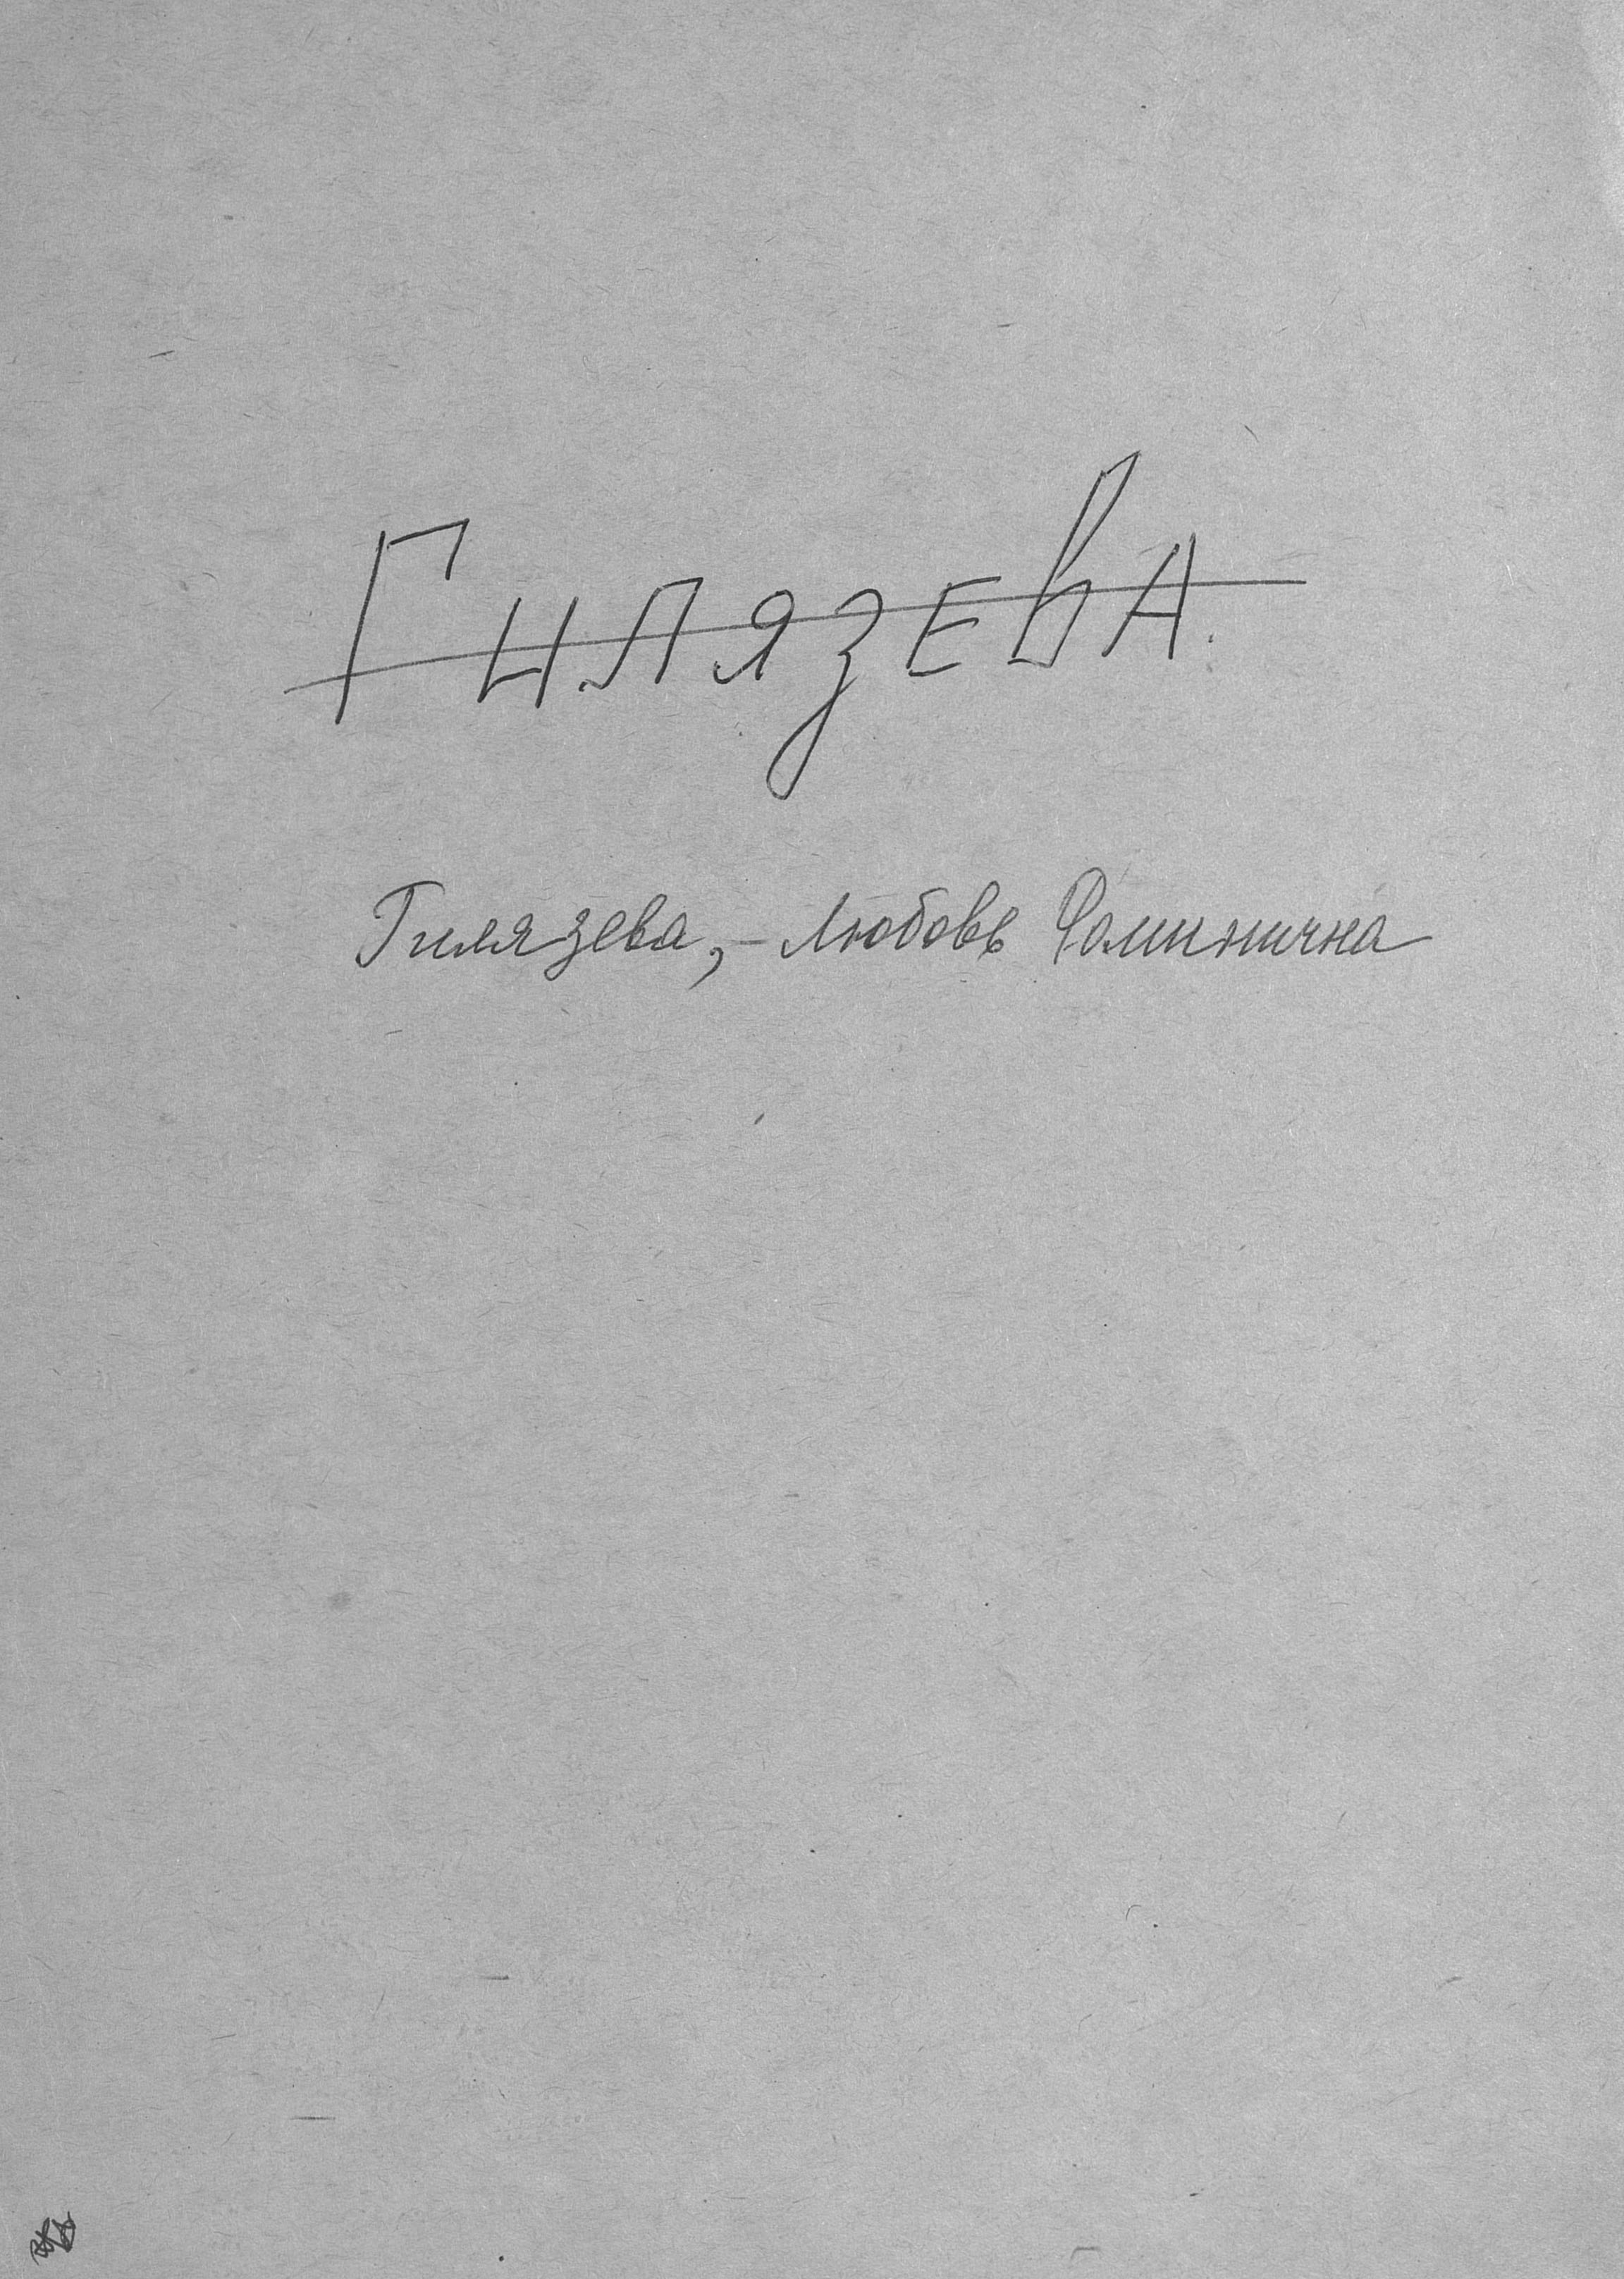 Гилязева.
Гилязева, - Любовь Фоминична